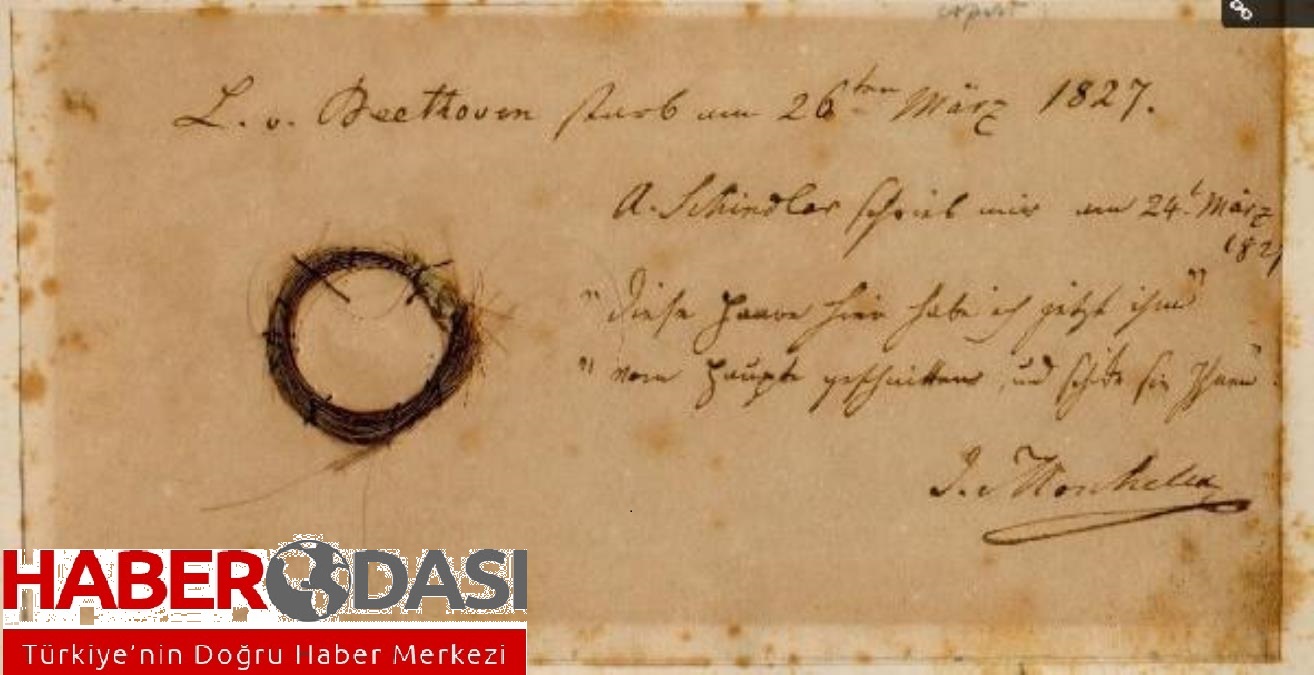 L. v. Beethoven starb am 26ten März 1827.
A. Schindler schrieb mir am 24t März
182
"Diese Haare hier habe ich jetzt ihm"
"vom Haupte geschnitten, und schicke sie Ihnen".
I. Moscheles
HABERODASI
Türkiye'nin Doğru Haber Merkezi